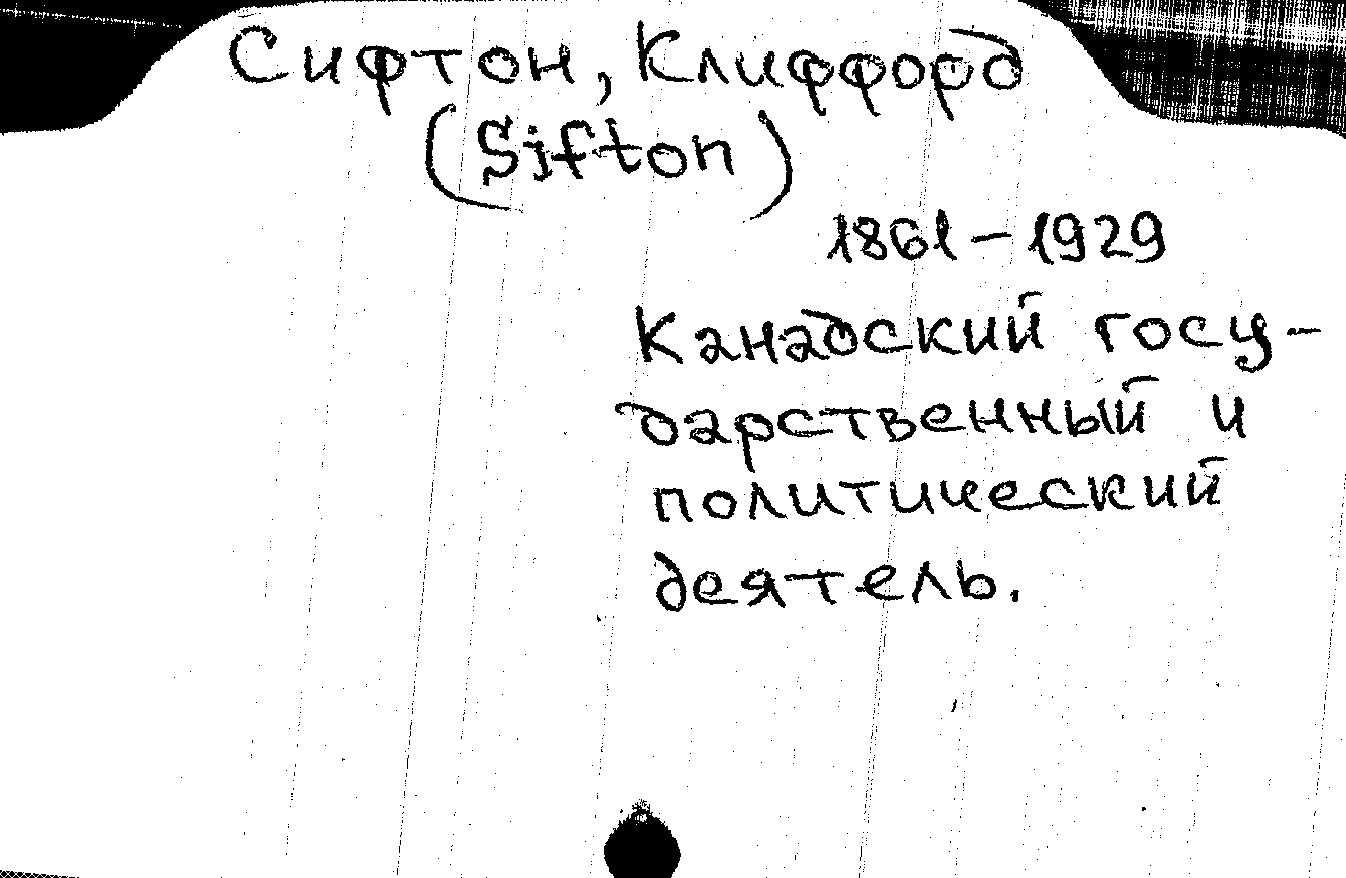 Сифтон, Клиффорд
(Sifton)
1861-1929
Канадский госу-
дарственный и
политический
деятель.